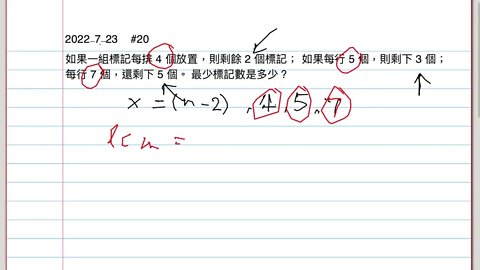 2022–7–23 #20
如果一組標記每排 4 個放置，則剩餘 2 個標記； 如果每行 5 個，則剩下 3 個；
每行 7 個，還剩下 5 個。 最少標記數是多少？
x = (n-2) , 4, 5, 7
lcm =